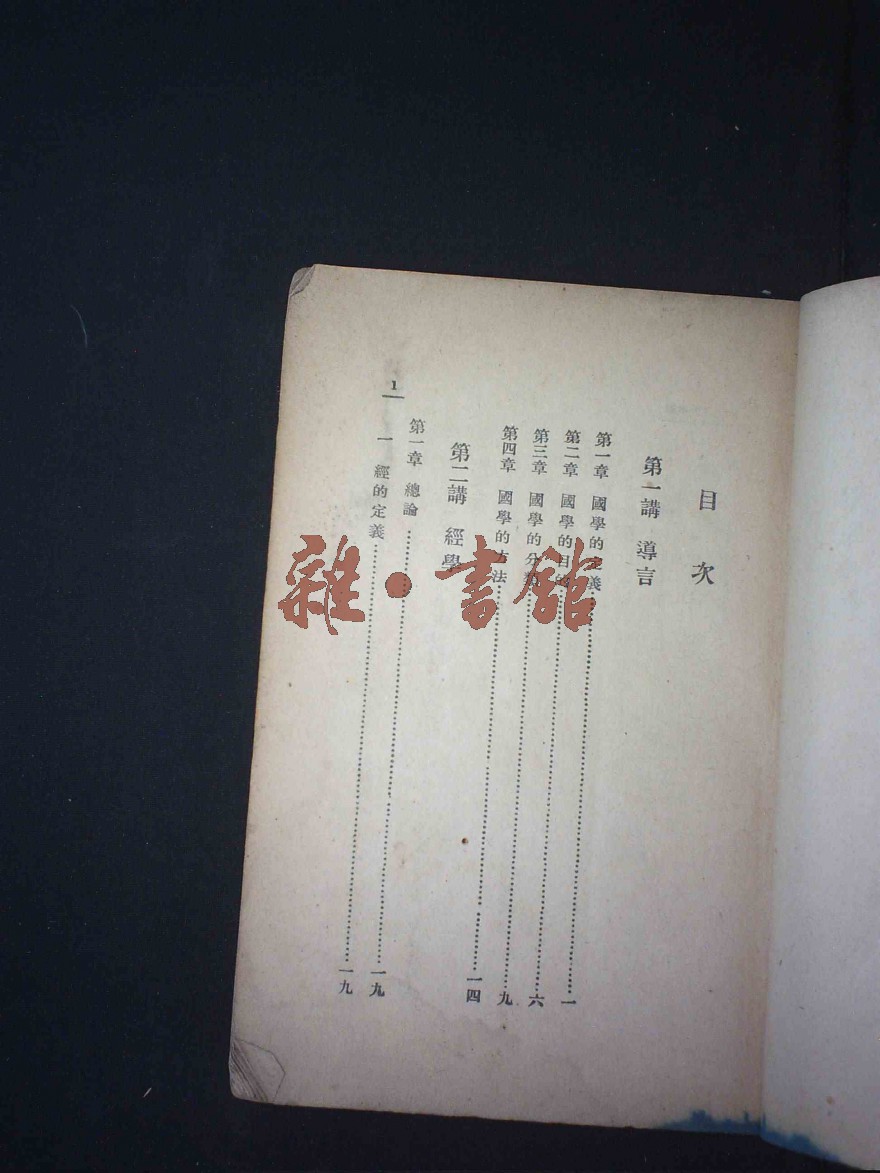 目次
第一講 導言
第一章 國學的定義……一
第二章 國學的目的……六
第三章 國學的分類……九
第四章 國學的方法……一四
第二講 經學
第一章 總論……一九
一 經的定義……一九
1
雜·書館